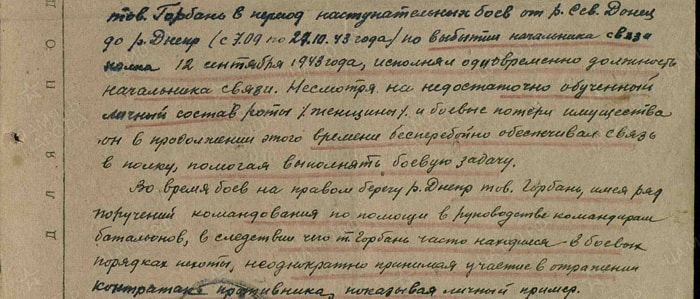 тов. Горбань в период наступательных боев от р. Сев. Донец
до р. Днепр (с 7.09 по 29.10.43 года) по выбытии начальника связи
полка 12 сентября 1943 года, исполнял одновременно должность
начальника связи. Несмотря на недостаточно обученный
личный состав роты /женщины/ и боевые потери имущества
он в продолжении этого времени бесперебойно обеспечивал связь
в полку, помогая выполнять боевую задачу.
Во время боев на правом берегу р. Днепр тов. Горбань, имея ряд
поручений командования по помощи в руководстве командирам
баталионов, в следствии чего т. Горбань часто находился в боевых
порядках пехоты, неоднократно принимая участие в отражении
контратак противника, показывая личный пример.
ДЛЯ ПОД